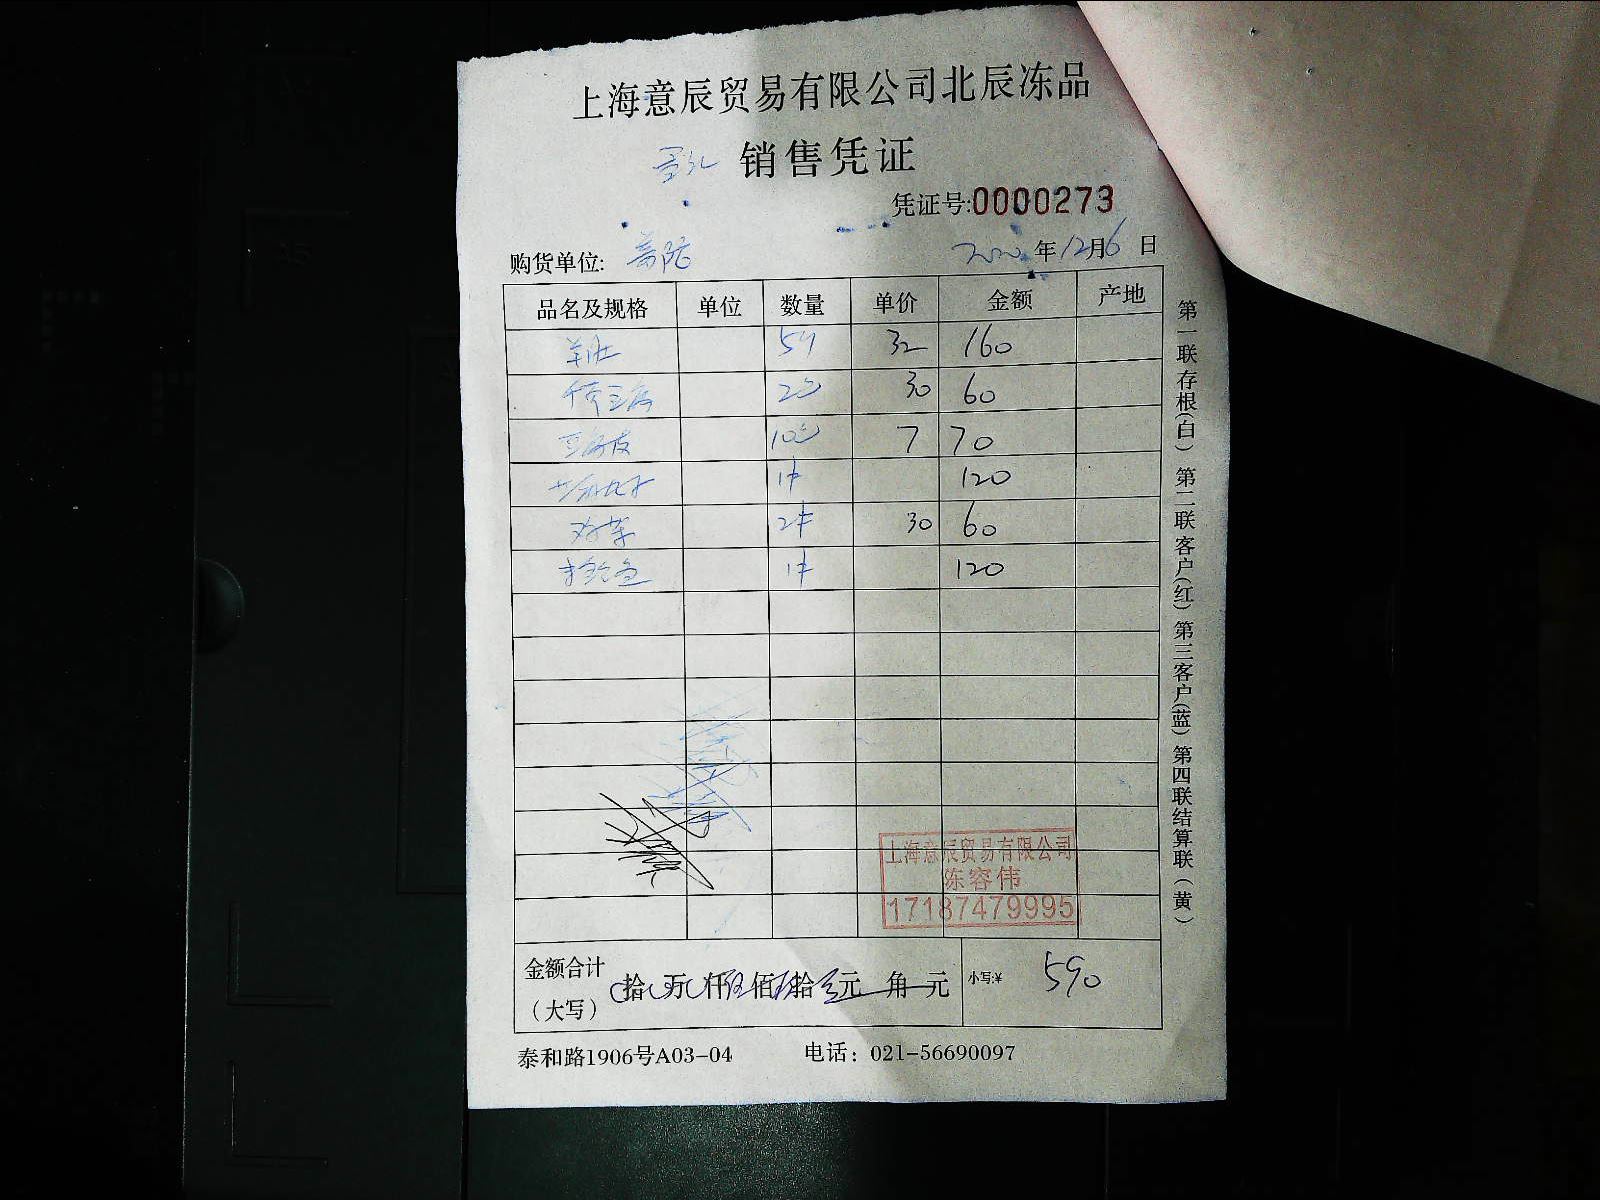 上海意辰贸易有限公司北辰冻品
销售凭证
凭证号:0000273
购货单位: 普陀 年12月6日
品名及规格 单位 数量 单价 金额 产地
羊肚 5斤 32 160
2包 30 60
10包 7 70
1件 120
2件 30 60
1件 120
上海意辰贸易有限公司
陈容伟
17187479995
金额合计(大写) 拾 万 仟 伍佰 拾 元 角 元 小写:¥ 590
泰和路1906号A03-04 电话：021-56690097
第一联存根(白) 第二联客户(红) 第三客户(蓝) 第四联结算联(黄)